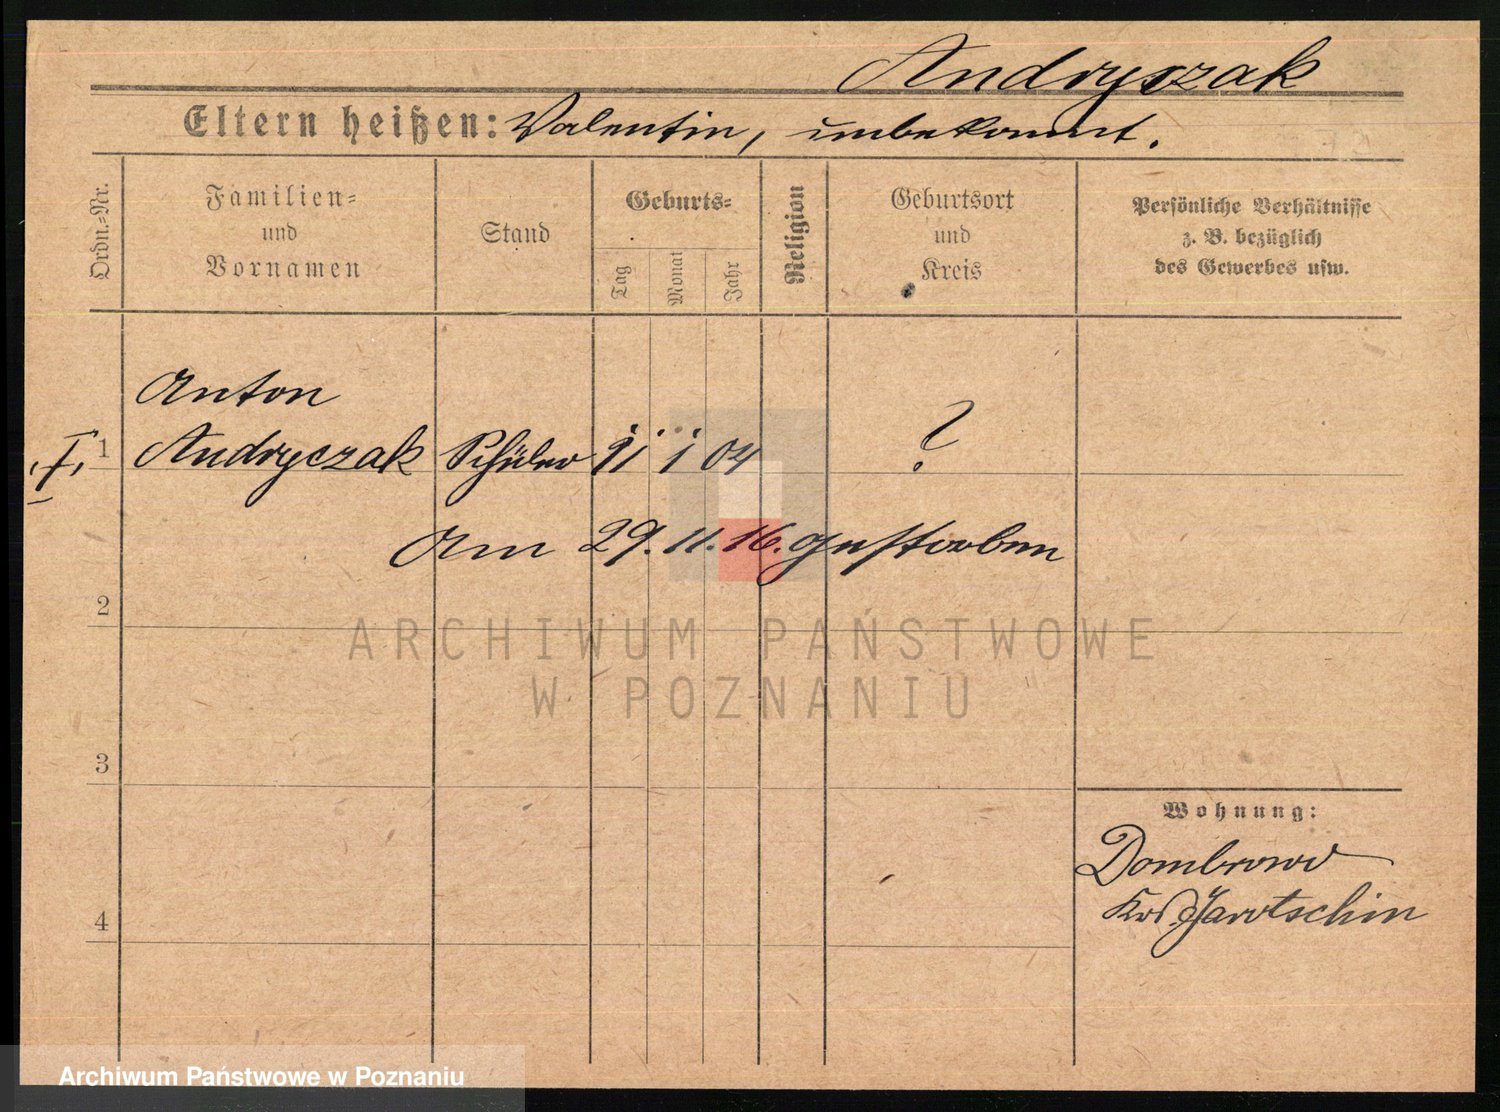 Andryszak
Eltern heißen: Valentin, unbekannt.
Ordn.-Nr.
Familien-
und
Vornamen
Stand
Geburts-
Tag
Monat
Jahr
Religion
Geburtsort
und
Kreis
Persönliche Verhältnisse
z. B. bezüglich
des Gewerbes usw.
Anton
1 Andryczak Schüler 1 04 ?
Am 29. 11. 16. gestorben
2
ARCHIWUM PAŃSTWOWE
W POZNANIU
3
Wohnung:
Dombrowo
Krs. Jarotschin
4
Archiwum Państwowe w Poznaniu